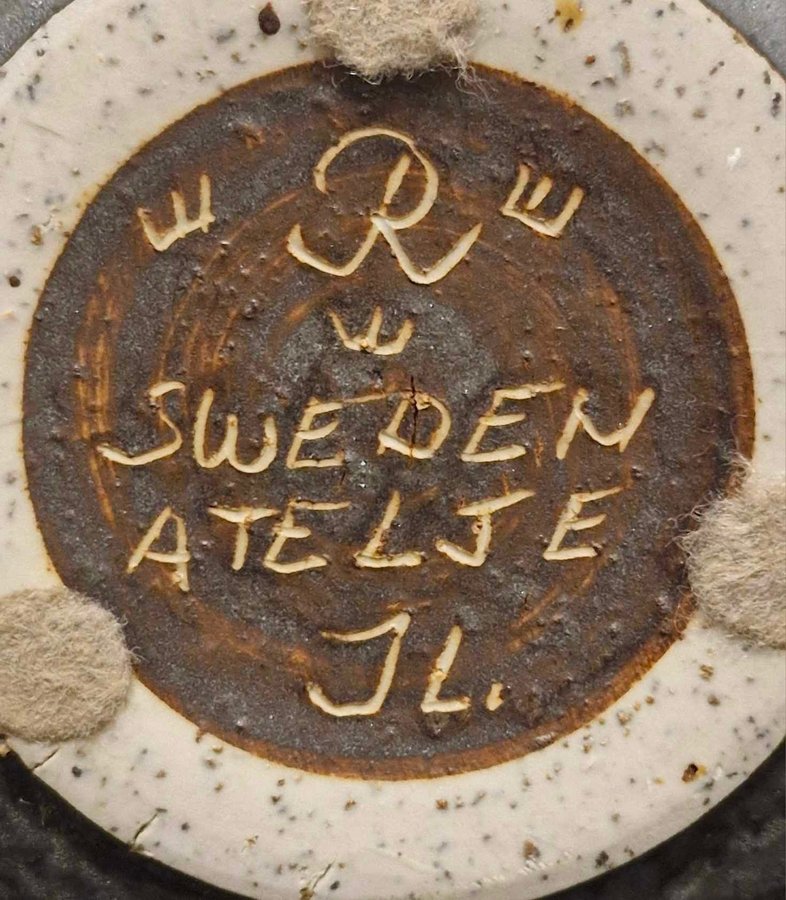 R
SWEDEN
ATELJE
JL.